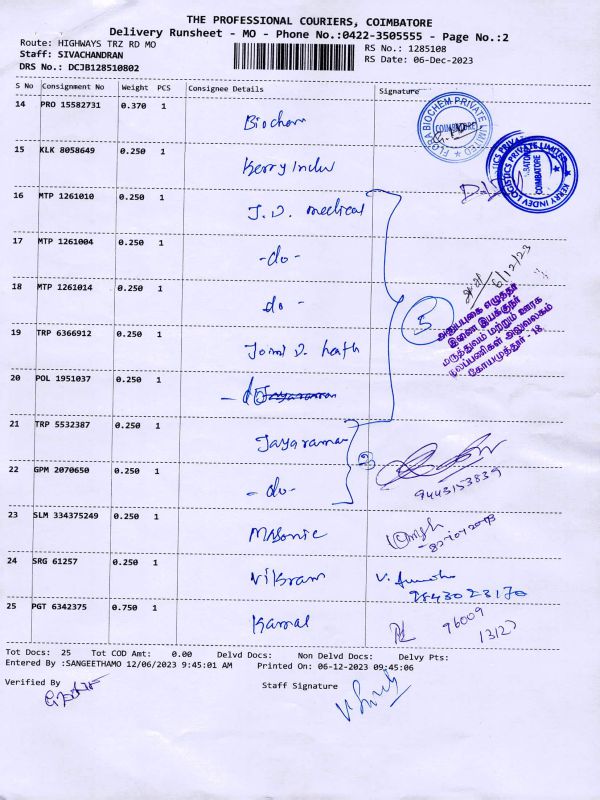 THE PROFESSIONAL COURIERS, COIMBATORE
Delivery Runsheet - MO - Phone No.:0422-3505555 - Page No.:2
Route: HIGHWAYS TRZ RD MO
RS No.: 1285108
Staff: SIVACHANDRAN
RS Date: 06-Dec-2023
DRS No.: DCJB128510802
S No Consignment No Weight PCS Consignee Details Signature
14 PRO 15582731 0.370 1 Biochem
FLORA BIOCHEM PRIVATE LIMITED
COIMBATORE
15 KLK 8058649 0.250 1 Kerry Indev
KERRY INDEV LOGISTICS PRIVATE LIMITED
COIMBATORE
16 MTP 1261010 0.250 1 J.D. medical
17 MTP 1261004 0.250 1 -do-
6/12/23
18 MTP 1261014 0.250 1 do -
5
இணை இயக்குநர்
மருத்துவம் மற்றும் ஊரக
கோயமுத்தூர் - 18
19 TRP 6366912 0.250 1 Joint D. heath
20 POL 1951037 0.250 1 - do
21 TRP 5532387 0.250 1 Jayarama
2
22 GPM 2070650 0.250 1 - do-
9443153839
23 SLM 334375249 0.250 1 Masonic
24 SRG 61257 0.250 1 Vikram
9843023170
25 PGT 6342375 0.750 1 Kamal
96009
13127
Tot Docs: 25 Tot COD Amt: 0.00 Delvd Docs: Non Delvd Docs: Delvy Pts:
Entered By :SANGEETHAMO 12/06/2023 9:45:01 AM Printed On: 06-12-2023 09:45:06
Verified By Staff Signature